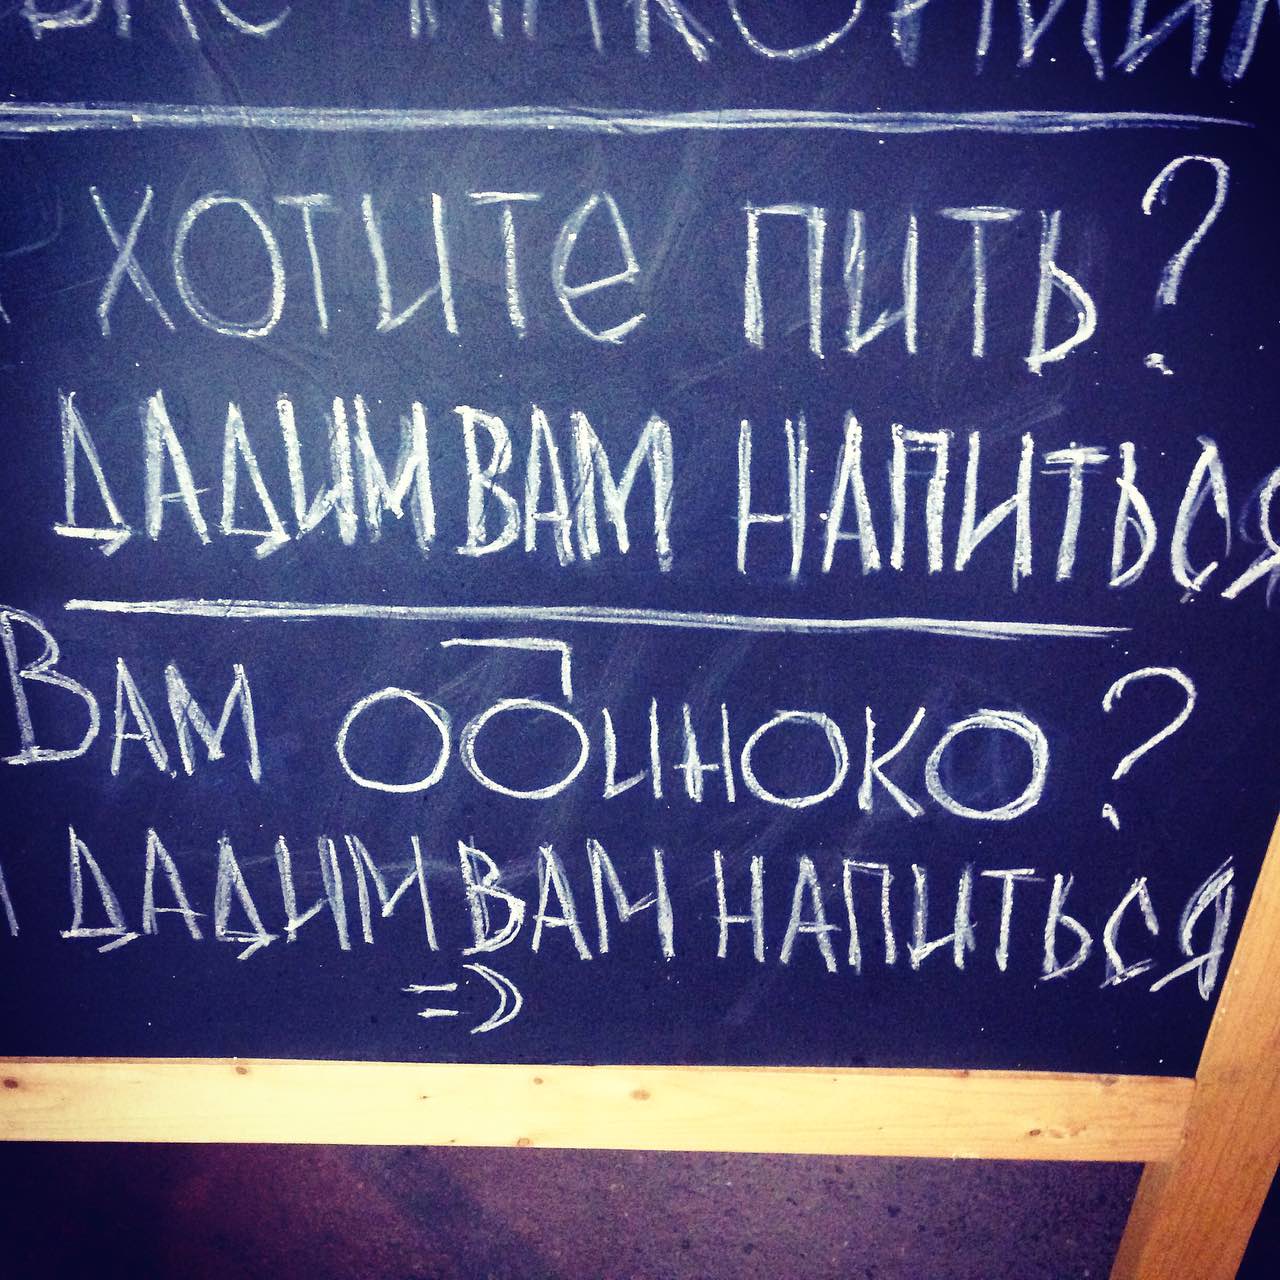 ХОТИТЕ ПИТЬ?
ДАДИМ ВАМ НАПИТЬСЯ
ВАМ ОДИНОКО?
ДАДИМ ВАМ НАПИТЬСЯ
=)